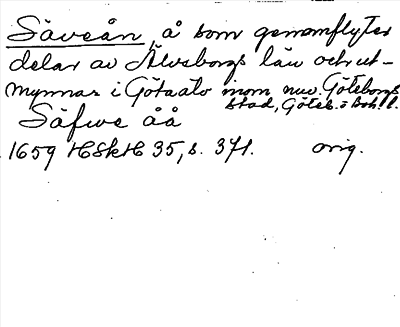 Säveån, å som genomflyter
delar av Älvsborgs län och ut-
mynnar i Götaälv inom nuv. Göteborgs
stad, Göteb. o Boh. l.
Säfwe åå
1659 HSkH 35, s. 371. orig.